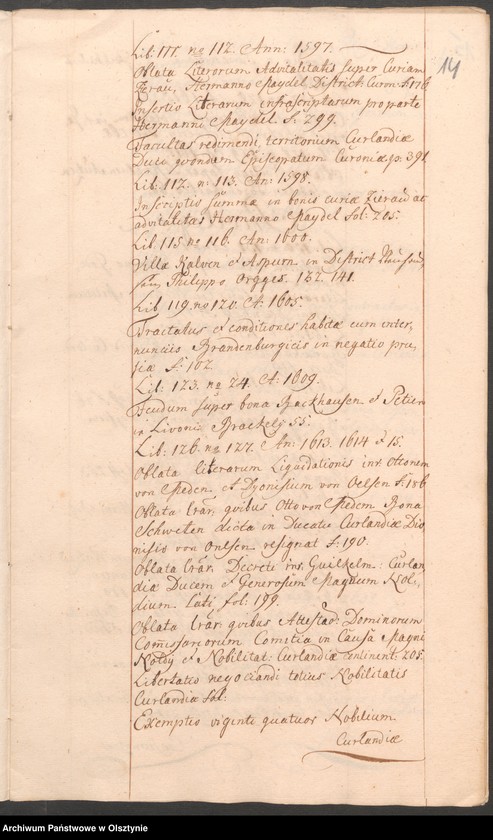 14
Lib: 111. no 112. Ann: 1597.
Oblata Literorum Advitalitatis super Curiam
Zierau, Hermanno Maydel District: Curon: f: 176
Insertio Literarum infrascriptarum pro parte
Hermanni Maydel f: 299.
Facultas redimendi territorium Curlandiæ
Duci quondam Episcopatum Curoniæ p: 391.
Lib: 112. n: 113. An: 1598.
Inscriptio summæ in bonis curiæ Zierau et
advitalitas Hermanno Maydel fol: 205.
Lib 115 no 116. An: 1600.
Villæ Kalven et Aspurn in District
Philippo Orgges. 132. 141.
Lib 119. no 120. A: 1605.
Tractatus et conditiones habitæ cum inter,
nunciis Brandenburgicis in negatio pru,
siæ f: 102.
Lib: 123. no 24. A: 1609.
Feudum super bona Backhausen et
in Livoni Brackely 55.
Lib: 126. no 127. An: 1613. 1614 et 15.
Oblata literarum Liquidationis int. Ottonem
von Meden, et Dyonisium von Oelsen f: 186
Oblata lrar: quibus Otto von Medem Bona
Schweten dicta in Ducatu Curlandiæ Dio
nisio von Onlsen resignat f: 190.
Oblata lrar: Decreti int. Guilhelm: Curlan
diæ Ducem et Generosum Magnum Nol,
dium Lati fol: 199.
Oblata lrar: quibus Attestao: Dominorum
Comissariorum Comitia in Causa Magni
Noldy et Nobilitat: Curlandiæ continent: 205.
Libertatio negociandi totius Nobilitatis
Curlandiæ fol:
Exemptio viginti quatuor Nobilium
Curlandiæ
Archiwum Państwowe w Olsztynie